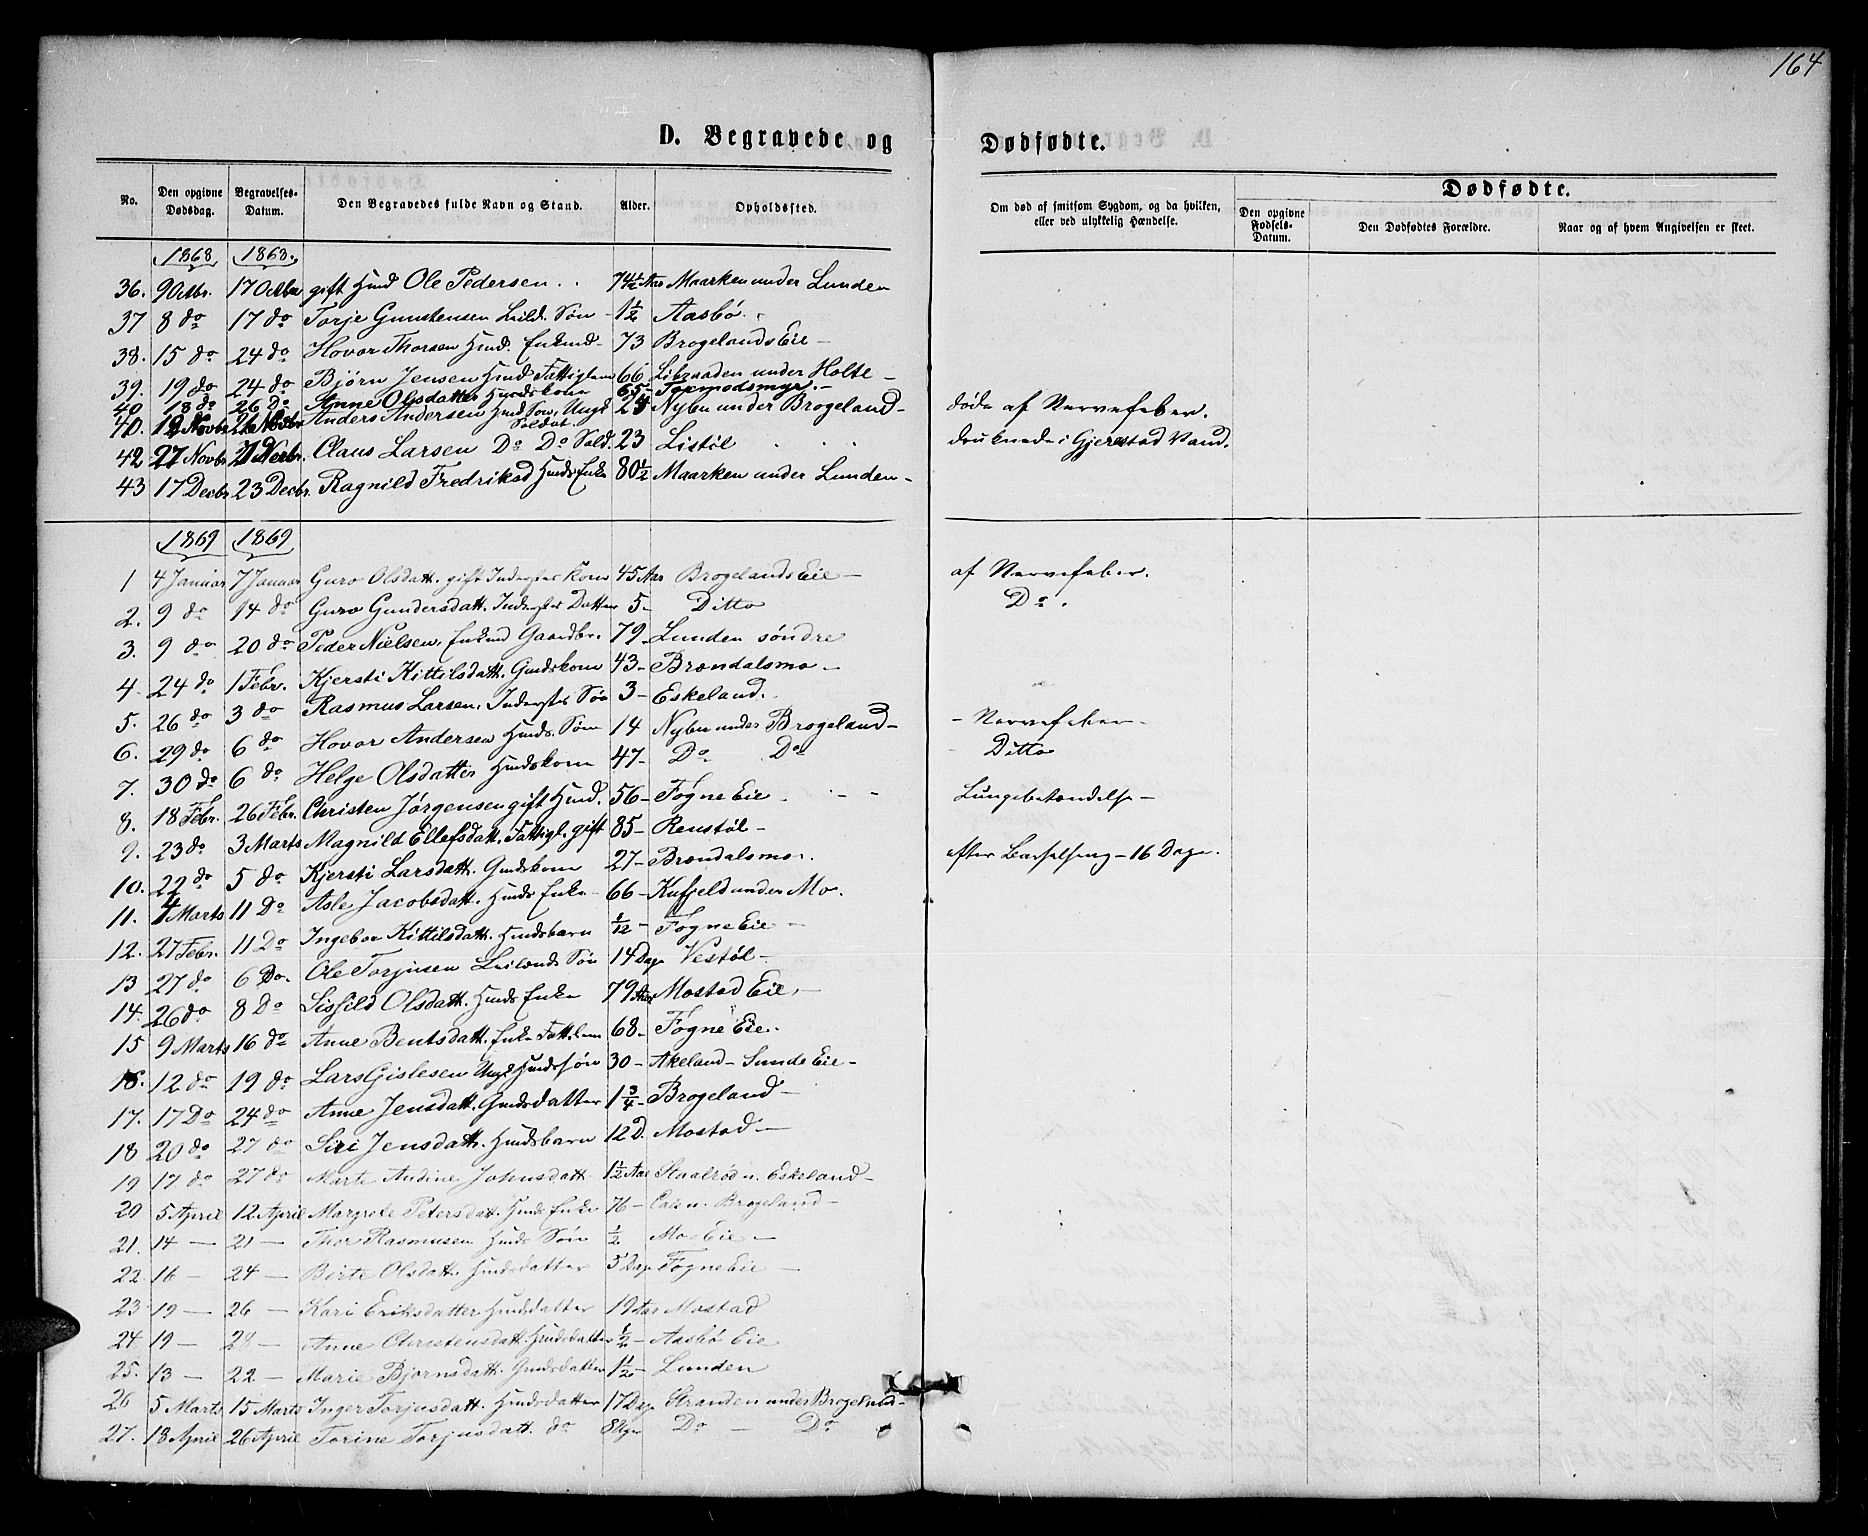 164
D. Begravede og Dødfødte.
No. Den opgivne Dødsdag. Begravelses-Datum. Den Begravedes fulde Navn og Stand. Alder. Opholdssted. Om død af smitsom Sygdom, og da hvilken, eller ved ulykkelig Hændelse. Dødfødte. Den opgivne Fødsels-Datum. Den Dødfødtes Forældre. Naar og af hvem Angivelsen er skeet.
1868 1868.
36. 9 Octbr. 17 Octbr gift Huusmd Ole Pedersen 74½ Aar Maarken under Lunden
37 8 do 17 do Torje Gunstensen Leild. Søn 1½ Aasbø
38. 15 do 24 do Hovor Thorsen Husmd. Enkemd 73 Brogelands Eie
39. 19 do 24 do Bjørn Jensen Husmd Fattiglem 66 under Holte
40 18 do 26 Do Anne Olsdatter Husmdskone 65 Tormodsmyr
40. 12 Novbr 26 Novbr Anders Andersen Husmd Søn, Ungk Soldat. 24 Nybu under Brogeland døde af Nervefeber.
42 27 Novbr Claus Larsen Do Do Sold. 23 Listøl druknede i Gjerestad Vand.
43 17 Decbr 23 Decbr. Ragnild Fredriksd Husmds Enke 80½ Maarken under Lunden
1869 1869
1 4 Januar 7 Januar Guro Olsdatt. gift Inderstes Kone 45 Aar Brogelands Eie af Nervefeber.
2. 9 do 14 do Guro Gundersdatt. Inderstes Datter 5 Ditto Do.
3. 9 do 20 do Peder Nielsen, Enkemd Gaardbr. 79 Lunden søndre
4. 24 do 1 Febr. Kjersti Kittilsdatt. Gmdskone 43 Brændalsmo
5. 26 do 3 do Rasmus Larsen, Inderstes Søn 3 Eskeland.
6. 29 do 6 do Hovor Andersen Husmds. Søn 14 Nybu under Brogeland Nervefeber
7. 30 do 6 do Helge Olsdatter Husmdskone 47 Do Do Ditto
8. 18 Febr. 26 Febr. Christen Jørgensen gift Husmd. 56 Føgne Eie Lungebetændelse
9. 23 do 3 Marts Magnild Ellefsdatt. Fattigl. gift 85 Renstøl
10. 22 do 5 do Kjersti Larsdatt. Gmdskone 27 Brændalsmo. efter Barselseng 16 Dage.
11. 4 Marts 11 Do Asle Jacobsdatt. Husmds Enke 66 Kufjeld under Mo.
12. 27 Febr. 11 Do Ingebor Kittilsdatt. Husmdsbarn 1/12 Føgne Eie
13 27 do 6 Do. Ole Torjusen Leilænds Søn 14 Dage Vestøl
14. 26 do 8 Do Sisfild Olsdatt. Husmds Enke 79 Aar Mostad Eie
15 9 Marts 16 do Anne Bentsdatt. Enke Fatt.lem 68 Føgne Eie.
16. 12 do 19 do Lars Gislesen Ungk Husmdssøn 30 Akeland Sunde Eie
17. 17 Do 24 do Anne Jensdatt. Gmdsdatter 1¾ Brogeland
18 20 do 27 do Siri Jensdatt. Husmdsbarn 12 D. Mostad
19 17 do 27 do Marte Andine Johnsdatt 1½ Aar Staalrød u. Eskeland
20 5 April 12 April Margrete Petersdatt. Husmds Enke 76 u. Brogeland
21. 14 — 21 — Thor Rasmusen Husmds Søn ½ Mo Eie
22. 16 — 24 — Berte Olsdatt. Husmdsdatter 5 Dage Føgne Eie
23 19 — 26 — Kari Eriksdatter. Husmddatter 19 Aar Mostad
24 19 — 28 — Anne Christensdatt. Husmdsdatter ½ Aasbø Eie
25. 13 — 22 — Marie Bjørnsdatt. Gmdsdatter 1½ Lunden
26 5 Marts 15 Marts Inger Torjusdatt. Husmdsdatter 17 Dage Stranden under Brogeland
27. 18 April 26 April Torine Torjusdatt. do 8 Uger Do — Do